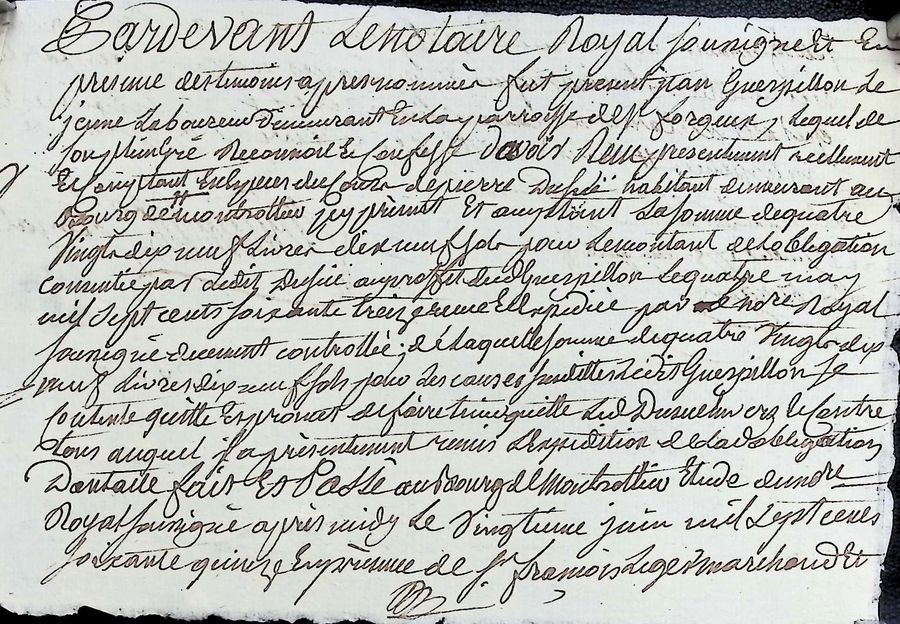 Pardevant Le notaire Royal soussigné Et En
presence des temoins apres nommés fut present jean Guespillon Le
jeune Laboureur demeurant En La parroisse de St forgeux, Lequel de
son plein gré Reconnoit & Confesse davoir Receu presentement reellement
Et Comptant En Especes du Cours de pierre Dusué habitant demeurant au
Bourg de montrottier icy present Et acceptant La somme de quatre
Vingts dix neuf Livres dix neuf sols pour Le montant de Lobligation
Consentie par Ledit Dusué au proffit dud Guespillon Le quatre may
mil sept cents soixante treize receue Et Expediée par Le nore Royal
soussigné decement controllée ; de Laquelle somme de quatre Vingts dix
neuf Livres dix neuf sols pour Les causes susdittes Ledit Guespillon se
Contente quitte Et promet de faire tenir quitte Led Dusué Envers Et Contre
tous auquel il a presentement remis Lexpedition de Lad obligation
Dont acte fait Et Passé au Bourg de Montrottier Etude du nore
Royal soussigné apres midy Le Vingtieme juin mil Sept cents
soixante quinze En presence de Sr francois Leger marchand Et